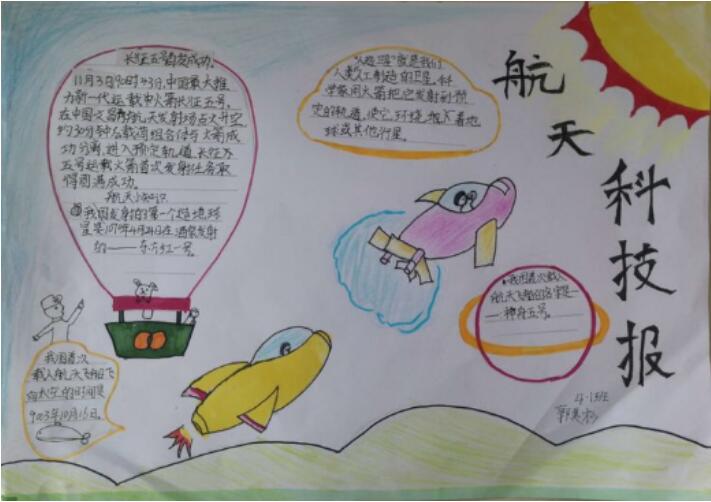 航天科技报
长征五号首发成功.
11月3日20时43分,中国最大推
力新一代运载火箭长征五号,
在中国文昌航天发射场点火升空
约30分钟后载荷组合体与火箭成
功分离,进入预定轨道,长征五
五号运载火箭首次发射任务取
得圆满成功。
航天小知识
我国发射的第一个
星是1970年4月24日在酒泉发射
的——东方红一号。
"人造卫星"就是我们
人类人工制造的卫星.科
学家用火箭把它发射到预
定的轨道,使它环绕着地
球或其他行星。
我国首次载人
航天飞船的名字是—
—神舟五号。
我国首次
载人航天飞船飞
向太空的时间是
4·1班